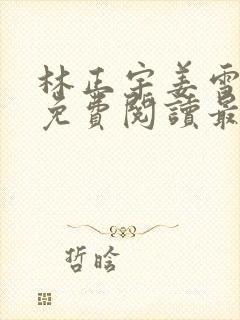 林正宇姜雪
免費閱讀最
哲晗